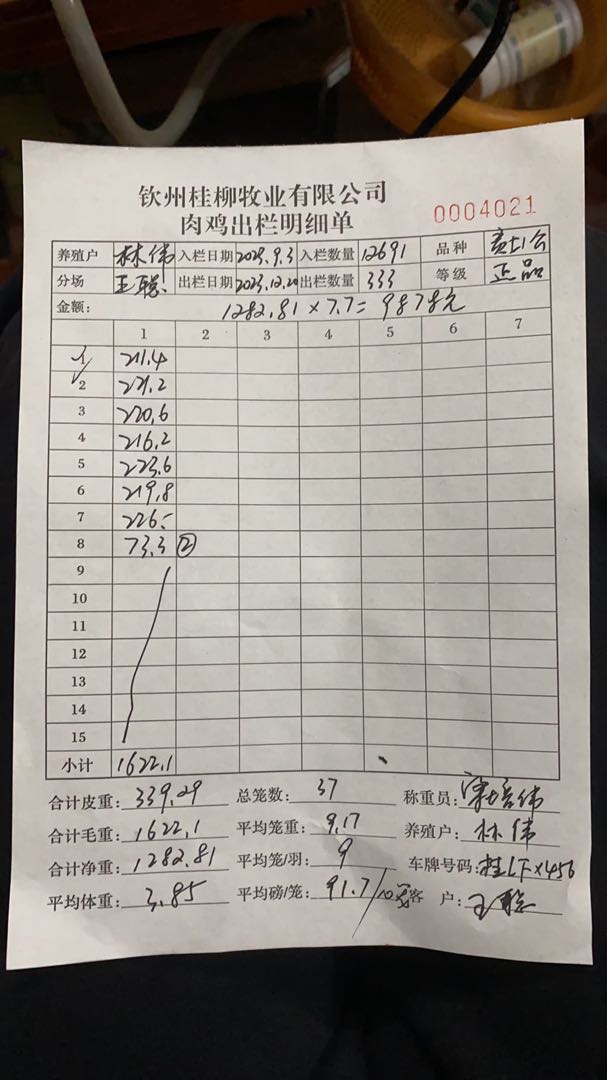 钦州桂柳牧业有限公司
肉鸡出栏明细单
0004021
养殖户 林伟 入栏日期 2023.9.3 入栏数量 12691 品种
分场 王聪 出栏日期 2023.12.20 出栏数量 333 等级 正品
金额: 1282.81×7.7=9878元
1 2 3 4 5 6 7
1 211.4
2 231.2
3 220.6
4 216.2
5 223.6
6 219.8
7 226.-
8 73.3 ②
9
10
11
12
13
14
15
小计 1622.1
合计皮重: 339.29 总笼数: 37 称重员:
合计毛重: 1622.1 平均笼重: 9.17 养殖户: 林伟
合计净重: 1282.81 平均笼/羽: 9 车牌号码: 桂LFX456
平均体重: 3.85 平均磅/笼: 91.7/10 客户: 王聪